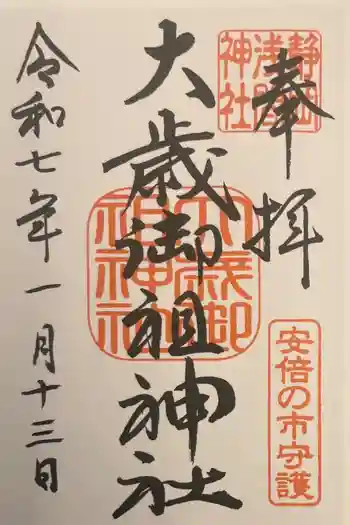 奉拝
静岡浅間神社
安倍の市守護
大歳御祖神社
大歳御祖神社
令和七年一月十三日